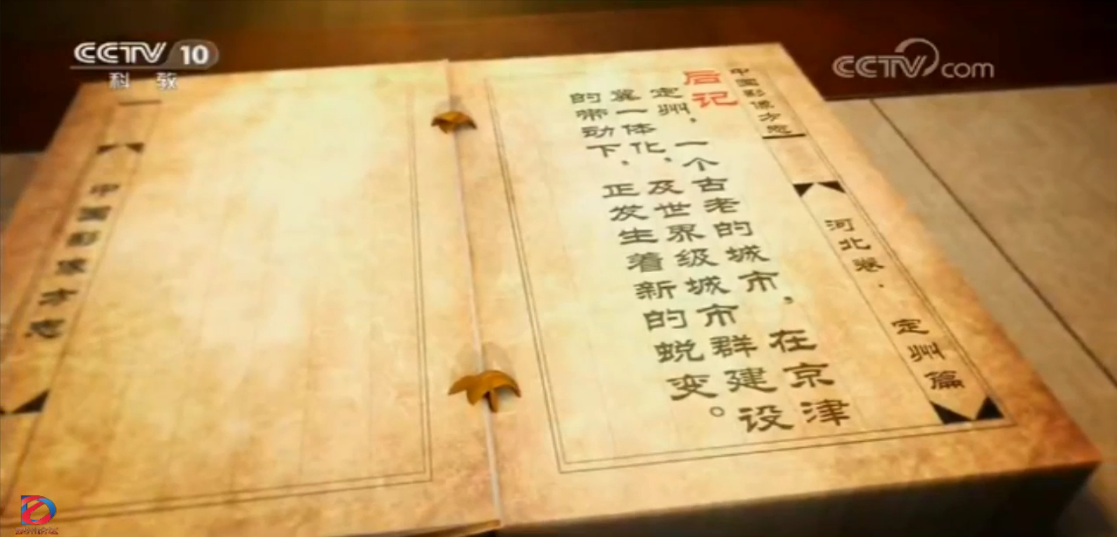 CCTV 10
科教
CCTV com
中国影像方志
河北卷·定州篇
后记
定州，一个古老的城市，在京津
冀一体化，及世界级城市群建设
的带动下，正发生着新的蜕变。
中国影像方志